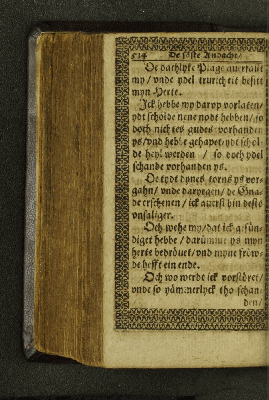 514 De söste Andacht.
De dachlyke Plage averfalt
my / unde ydel trurich eit besitt
myn Herte.
Ick hebbe my darup vorlaten /
ydt schölde nene nodt hebben / so
doch nich tes gudes vorhanden
ys / vnd hebbe gehapet / ydt schol=
de heyl werden / so doch ydel
schande vorhanden ys.
De tydt dynes torns ys vor=
gahn / unde daryegen / de Gna=
de erschenen / ick averst bin deste
vnsaliger.
Och wehe my / dat ick gesün=
diget hebbe / darümme ys myn
herte bedrövet / vnd myne fröw=
de hefft ein ende.
Och wo werde ick vorstöret /
vnde so yämmerlyck tho schan=
den /